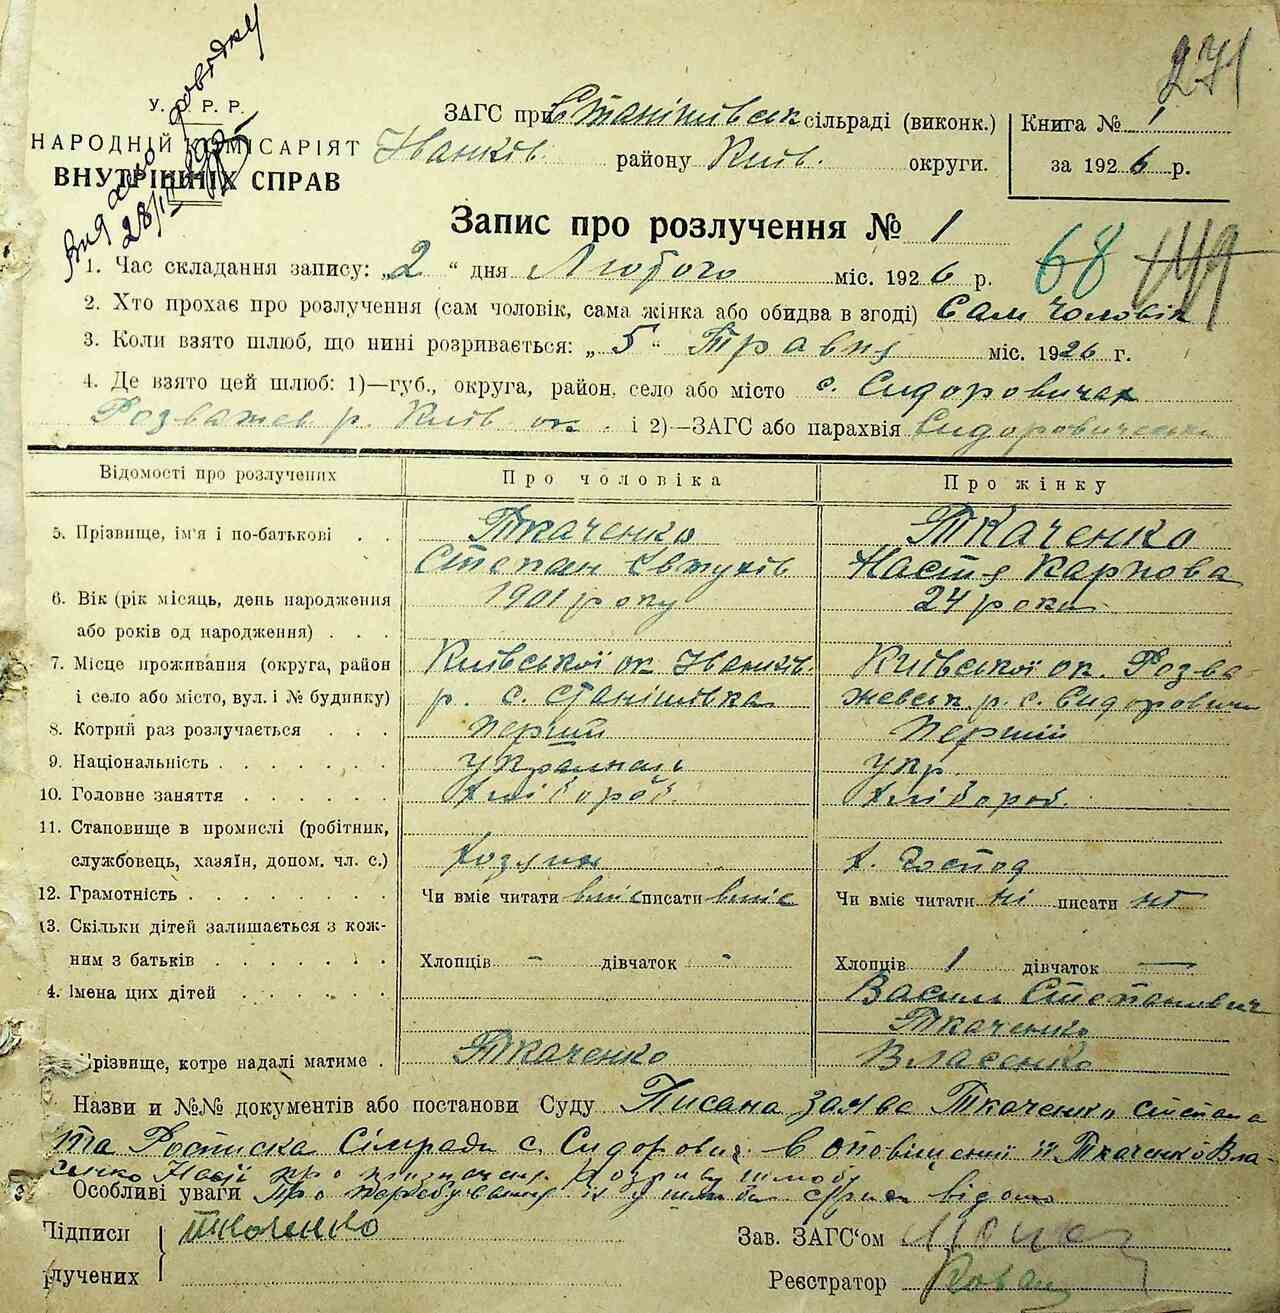 271
Видано довідку
28/III 1925
У. С. Р. Р.
НАРОДНІЙ КОМІСАРІЯТ
ВНУТРІШНІХ СПРАВ
ЗАГС при Станішівськ сільраді (виконк.)
Іванків. району Київ. округи.
Книга № 1
за 1926 р.
Запис про розлучення № 1
68 149
1. Час складання запису: „2“ дня Лютого міс. 1926 р.
2. Хто прохає про розлучення (сам чоловік, сама жінка або обидва в згоді) Сам чоловік
3. Коли взято шлюб, що нині розривається: „5“ Травня міс. 1926 г.
4. Де взято цей шлюб: 1)—губ., округа, район, село або місто с. Сидоровичах
Розважев р. Київ ок. і 2)—ЗАГС або парахвія Сидоровическ
Відомості про розлучених Про чоловіка Про жінку
5. Прізвище, ім'я і по-батькові . . Ткаченко Ткаченко
Степан Євтухів Настя Карпова
6. Вік (рік місяць, день народження 1901 року 24 роки
або років од народження) . . .
7. Місце проживання (округа, район Київської ок. Іванків. Київської ок. Розва-
і село або місто, вул. і № будинку) р. с. Станішівка жевськ. р. с. Сидоровичи
8. Котрий раз розлучається . . . перший перший
9. Національність . . . . . . . українець укр.
10. Головне заняття . . . . . . хлібороб. хлібороб.
11. Становище в промислі (робітник,
службовець, хазяїн, допом. чл. с.) хозяин х. господ
12. Грамотність . . . . . . . . Чи вміє читати вміє писати вміє Чи вміє читати ні писати ні
13. Скільки дітей залишається з кож-
ним з батьків . . . . . . . Хлопців - дівчаток - Хлопців 1 дівчаток —
4. Імена цих дітей . . . . . . Василь Степанович
Ткаченко
Прізвище, котре надалі матиме . Ткаченко Власенко
Назви и №№ документів або постанови Суду Писана заява Ткаченко Степана
та Росписка Сілради с. Сидорович. в оповіщенні її Ткаченко Вла-
сенко Насті про призначен. розриву шлюбу
Особливі уваги Про перебування їх у шлюбі
Підписи Ткаченко
лучених
Зав. ЗАГС'ом
Реєстратор